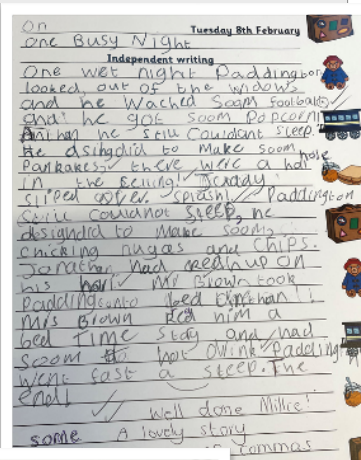 On
Tuesday 8th February
One Busy Night
Independent writing
One wet night Paddington
looked, out of the widows
and he Wached Soom football
and he got Soom Popcorn
he still Couldant Sleep.
He dsingdid to make Soom
Pankakes. there were a hol
in the Seiling!
Sliped over. Splash! Paddington
Still Couldnot Sleep, he
designdid to make Soom
chicking nugas and chips.
Jonathan had up on
his Mr Brown took
Paddington to bed then
Mrs Brown Red him a
bed Time Story and had
Soom hot Paddington
went fast a sleep. The
end!
Well done Millie!
some A lovely story
commas